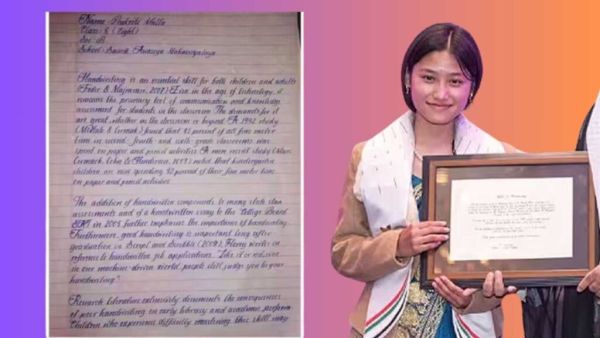 Name: Prakriti Malla
Class: 8 (Eight)
Sec: B
School: Sainik Awasiya Mahavidyalaya
Handwriting is an essential skill for both children and adults
(Feder & Majnemer, 2007). Even in the age of technology, it
remains the primary tool of communication and knowledge
assessment for students in the classroom. The demands for it
are great, whether in the classroom or beyond. A 1992 study
(McHale & Cermak) found that 85 percent of all fine motor
time in second- fourth- and sixth-grade classrooms was
spent on paper and pencil activities. A more recent study (Marr,
Cermak, Cohn & Henderson, 2003) noted that kindergarten
children are now spending 42 percent of their fine motor time
on paper and pencil activities.
The addition of handwritten components to many state
assessments and of a handwritten essay to the College Board
SAT in 2005 further emphasize the importance of handwriting.
Furthermore, good handwriting is important long after
graduation. In Script and Scribble (2009), Florey writes in
reference to handwritten job applications, "Like it or
in our machine-driven world, people still judge you by your
handwriting."
Research literature extensively documents the consequences
of poor handwriting on early literacy and academic
Children who experience difficulty mastering this skill may